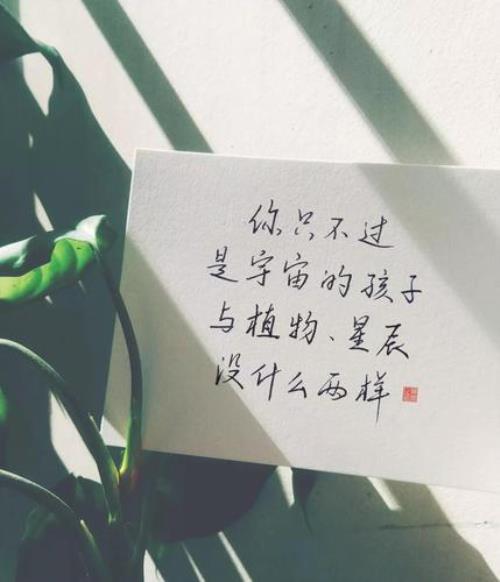 你只不过
是宇宙的孩子
与植物、星辰
没什么两样